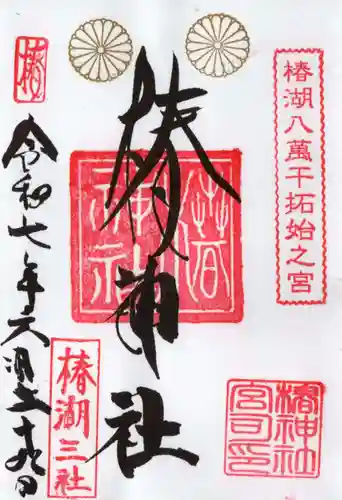 椿湖八萬干拓始之宮
椿神社
宮司之印
椿神社
椿神社
椿
椿湖三社
令和七年六月二十九日